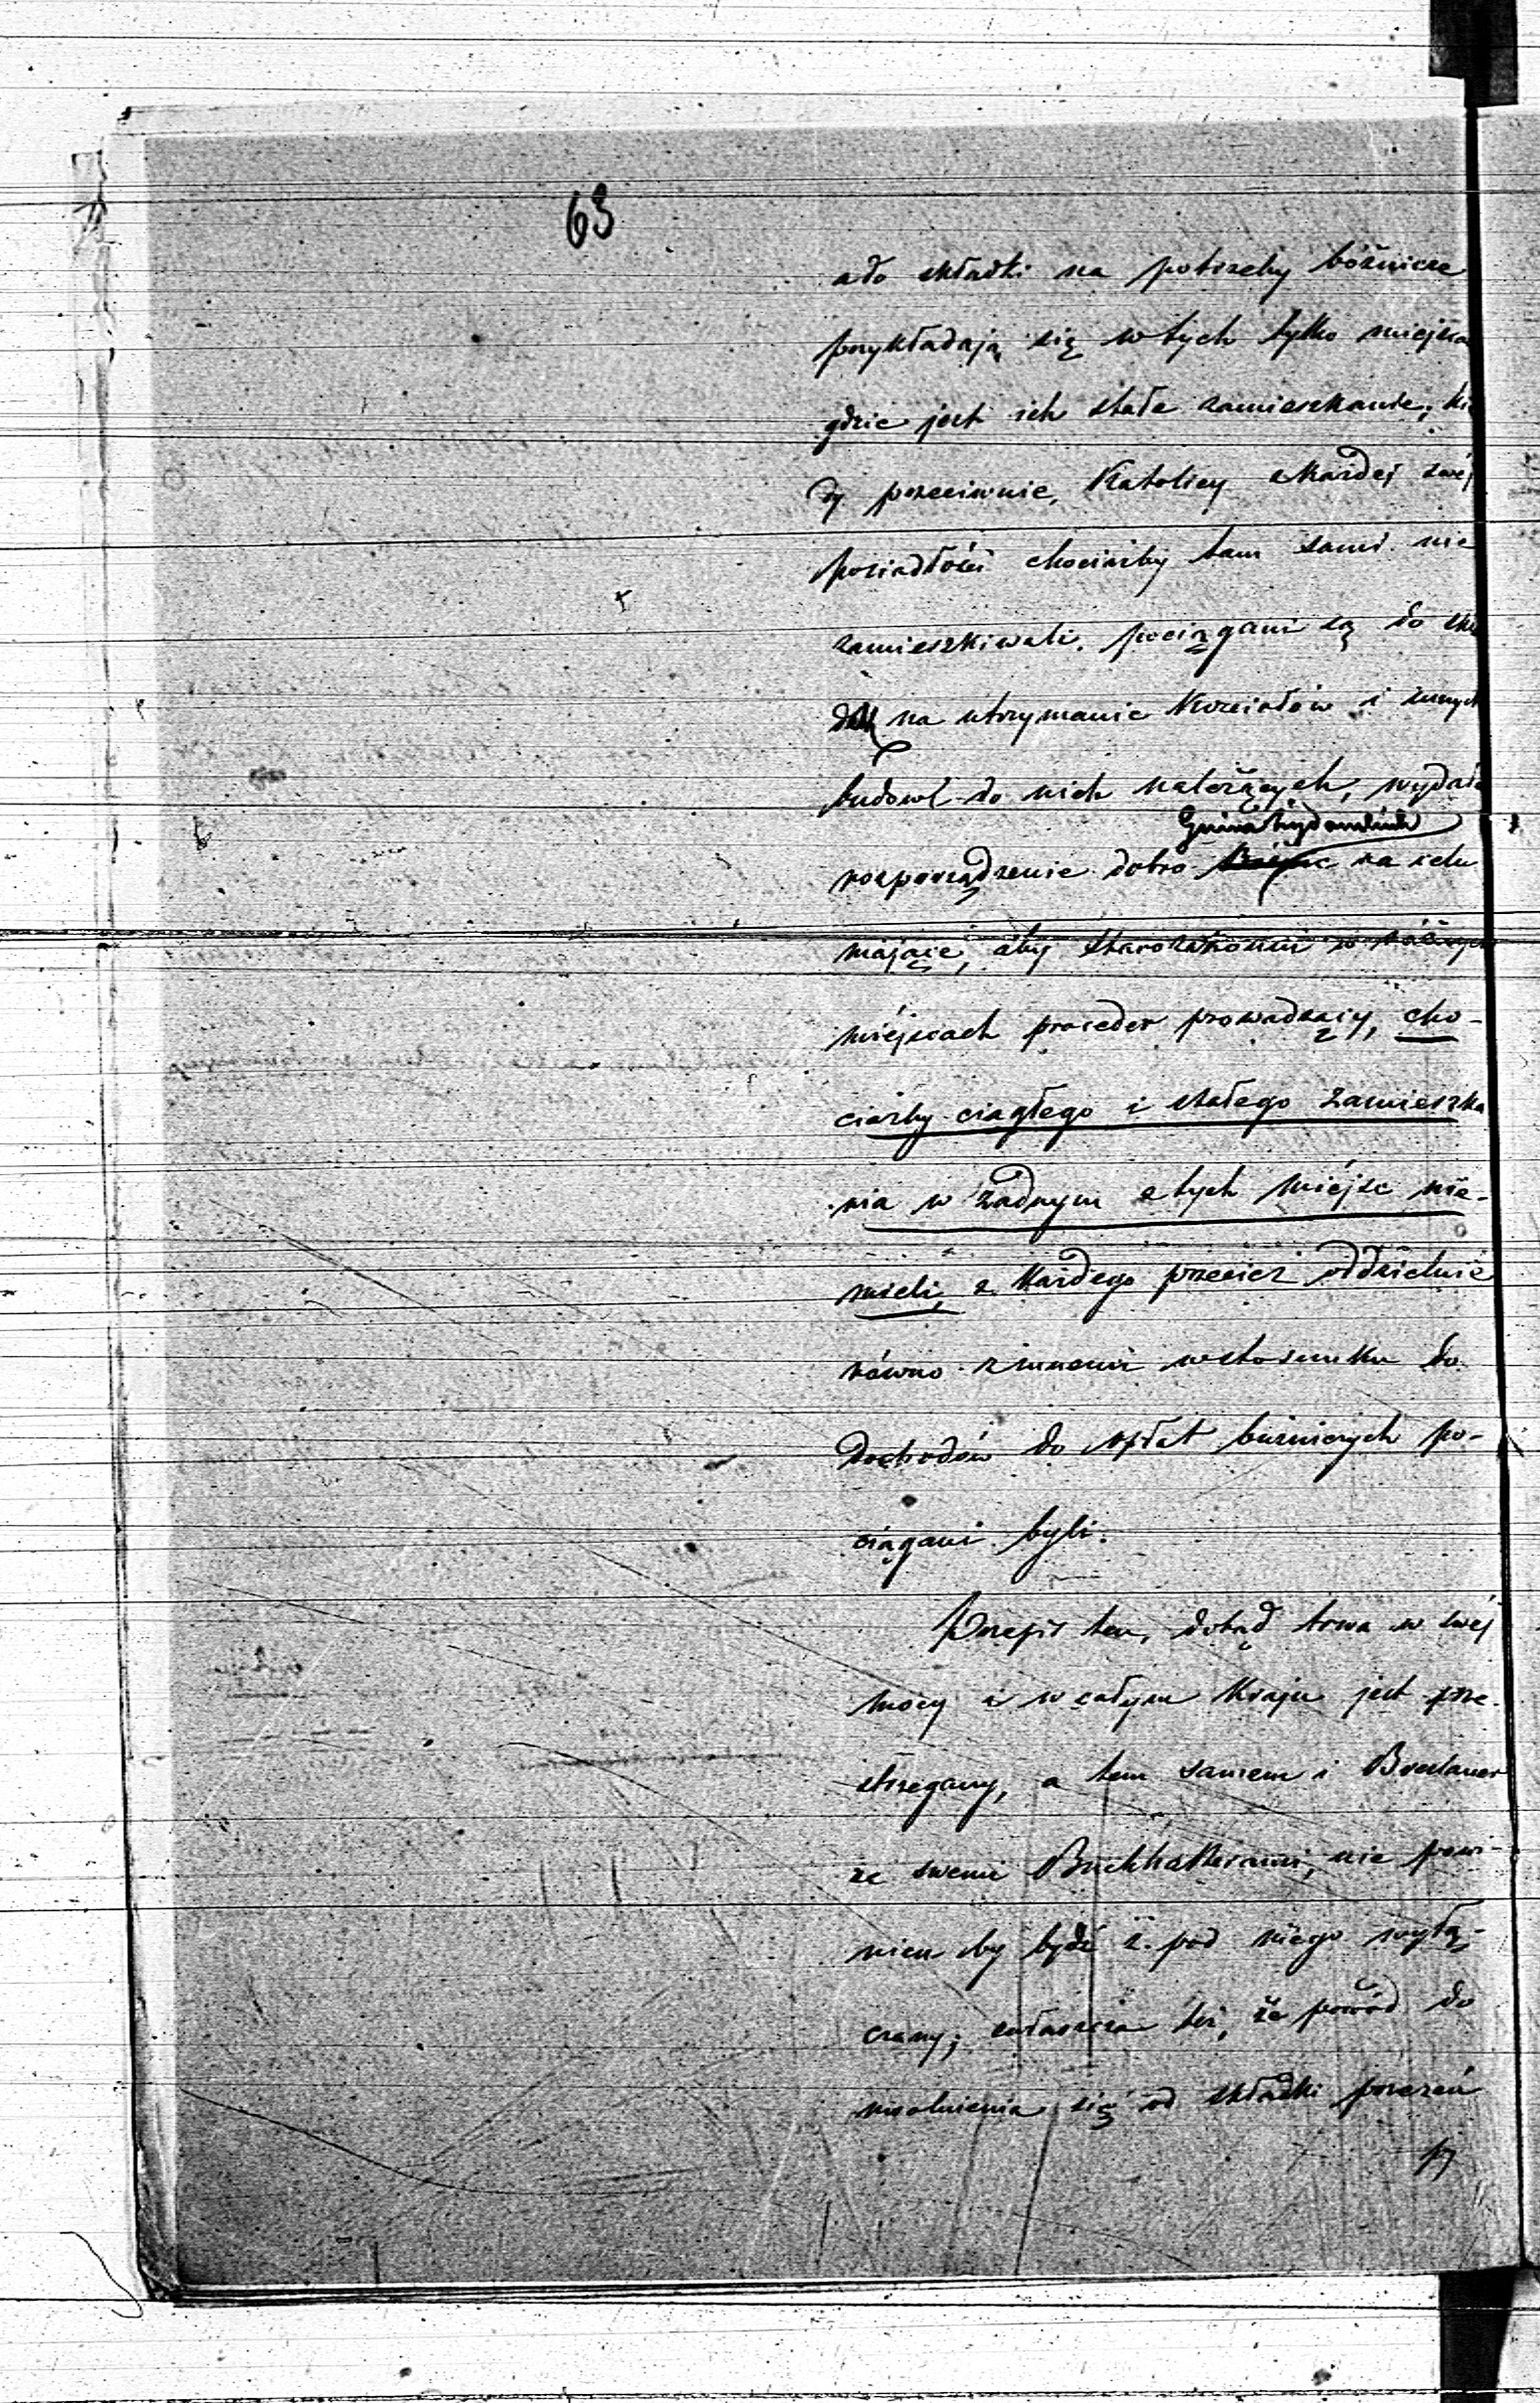 63
a do składki na potrzeby bóżnicze
przykładają się w tych tylko miejsca
gdzie jest ich stałe zamieszkanie, kie
dy przeciwnie, Katolicy z każdej swéj
posiadłości chociażby tam sami nie
zamieszkiwali, pociągani są do skła
dek na utrzymanie Kościołów i innych
budowl do nich należących, wydała
Gmin
rozporządzenie dobro na celu
mające, aby starozakonni w różnych
miéjscach proceder prowadzący, cho-
ciażby ciągłego i stałego zamieszka
nia w żadnym z tych miéjsc nie-
mieli, z każdego przecież oddzielnie
równo z innemi w stosunku do
dochodów do opłat bużniczych po-
ciągani byli.
Przepis ten, dotąd trwa w swéj
mocy i w całym Kraju jest prze-
strzegany, a tem samem i Breslauer
ze swemi Buchhalterami, nie powi-
nien by być z pod niego wyłą-
czany; zwłaszcza też, że powód do
uwolnienia się od składki przezeń